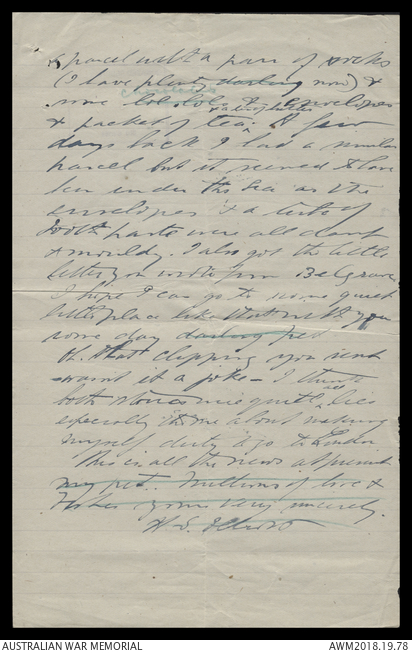 a parcel with a pair of socks
(I have plenty darling now) &
some lol lols & Envelopes
& packet of tea. A few
days back I had a similar
parcel but it seemed to have
been under the Sea as the
envelopes & a tube of
tooth paste were all damp
& mouldy. I also got the little
letter you wrote from Belgrave
I hope I can go to some quiet
little place like that with you
some day darling pet
Oh that clipping you sent
wasnt it a joke - I think
both stories were quite lies
especially the one about making
myself dirty to go to London
This is all the news at present
my pet. Millions of love &
kisses yours very sincerely
AUSTRALIAN WAR MEMORIAL
AWM2018.19.78